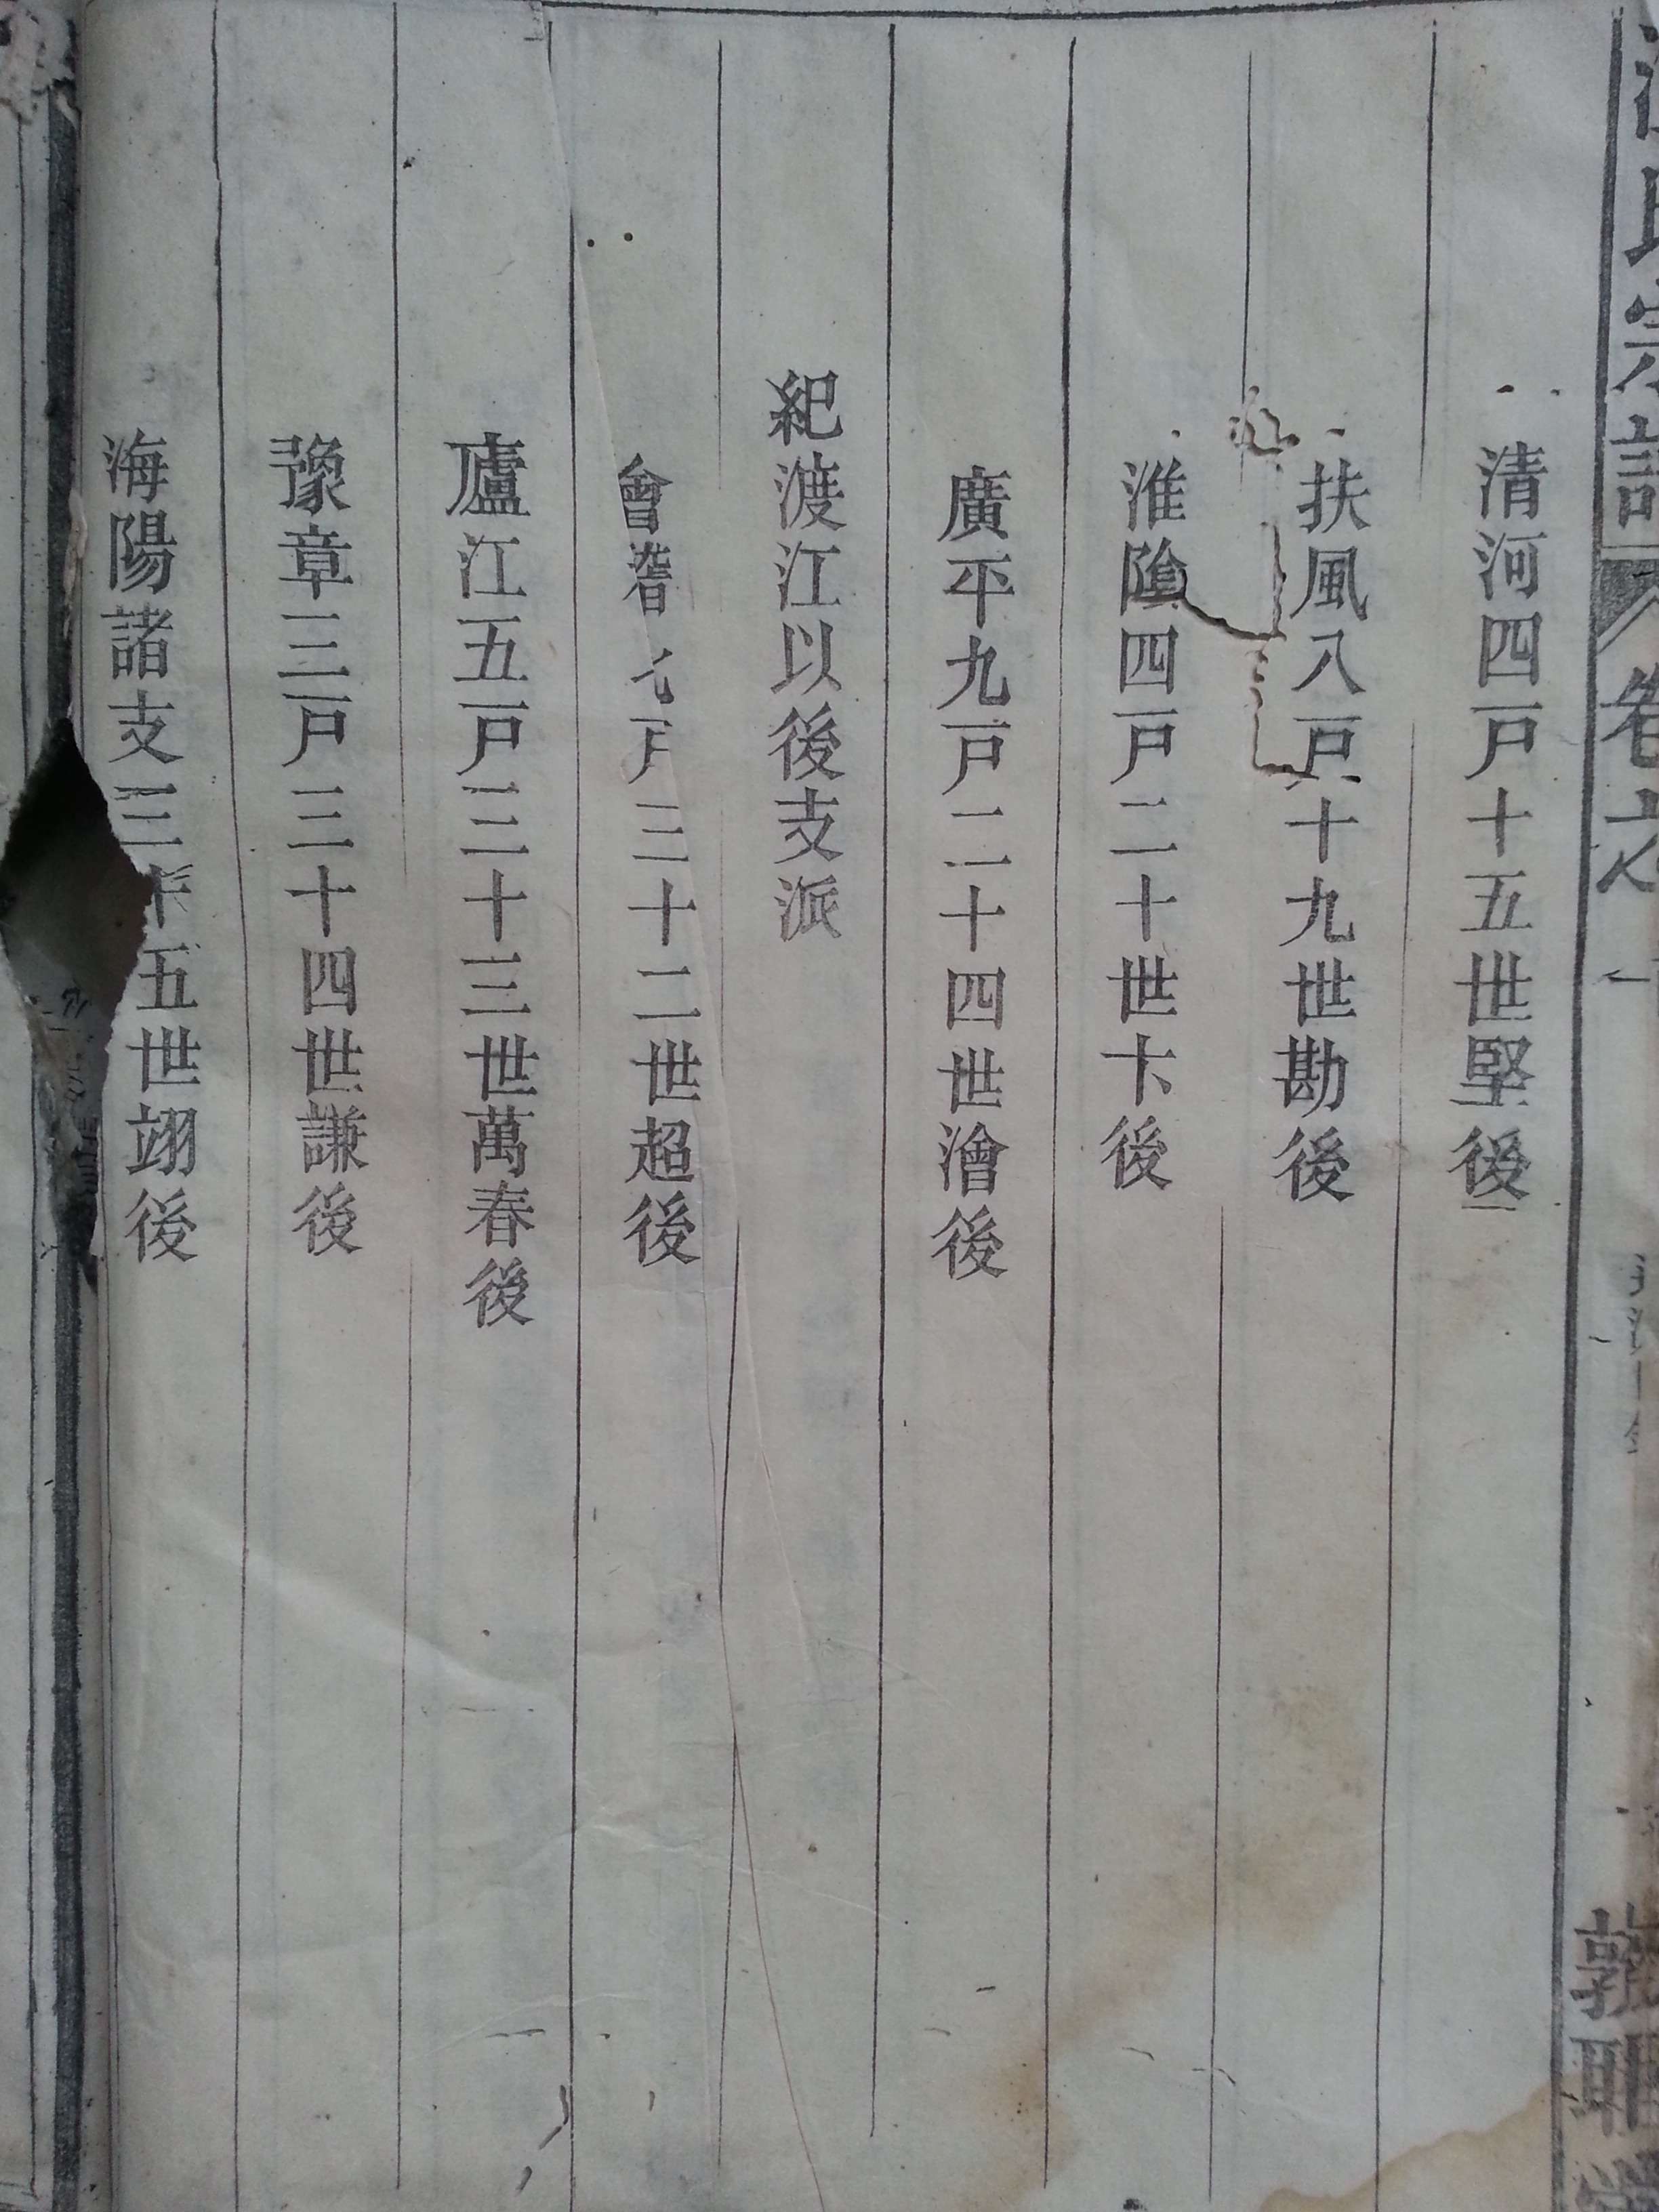 卷
清河四戸十五世堅後
扶風八戸十九世勘後
淮陰四戸二十世卞後
廣平九戸二十四世澮後
紀渡江以後支派
會稽 戸三十二世超後
廬江五戸三十三世萬春後
豫章三戸三十四世謙後
海陽諸支三十五世翊後